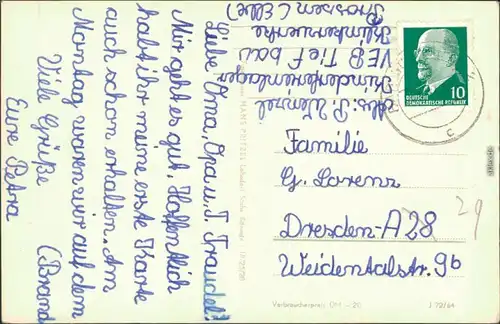 Liebe Oma, Opa u. T. Traudel!
Mir geht es gut. Hoffentlich
habt ihr meine erste Karte
auch schon erhalten. Am
Montag waren wir auf dem
Viele Grüße (Brand
Eure Petra
Abs.: P. Wenzel
Kinderferienlager
VEB Tief bau
Klinkerwerke
Prossen (Elbe)
10
DEUTSCHE
DEMOKRATISCHE REPUBLIK
c
Familie
G. Lorenz
Dresden-A 28
Weidentalstr. 96
29
HANS
Verbraucherpreis DM —.20
J 72/64